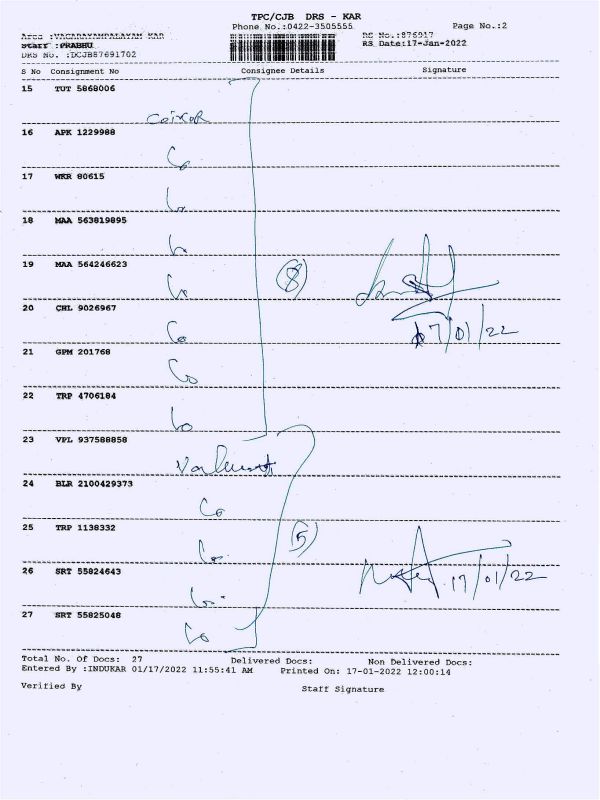 TPC/CJB DRS - KAR
Phone No.:0422-3505555 Page No.:2
Staff :PRABHU RS No.:876917
DRS No. :DCJB87691702 RS Date:17-Jan-2022
S No Consignment No Consignee Details Signature
15 TUT 5868006
16 APK 1229988
17 WKR 80615
18 MAA 563819895
19 MAA 564246623
8
20 CHL 9026967
17/01/22
21 GPM 201768
22 TRP 4706184
23 VPL 937588858
24 BLR 2100429373
25 TRP 1138332
5
26 SRT 55824643
17/01/22
27 SRT 55825048
Total No. Of Docs: 27 Delivered Docs: Non Delivered Docs:
Entered By :INDUKAR 01/17/2022 11:55:41 AM Printed On: 17-01-2022 12:00:14
Verified By Staff Signature